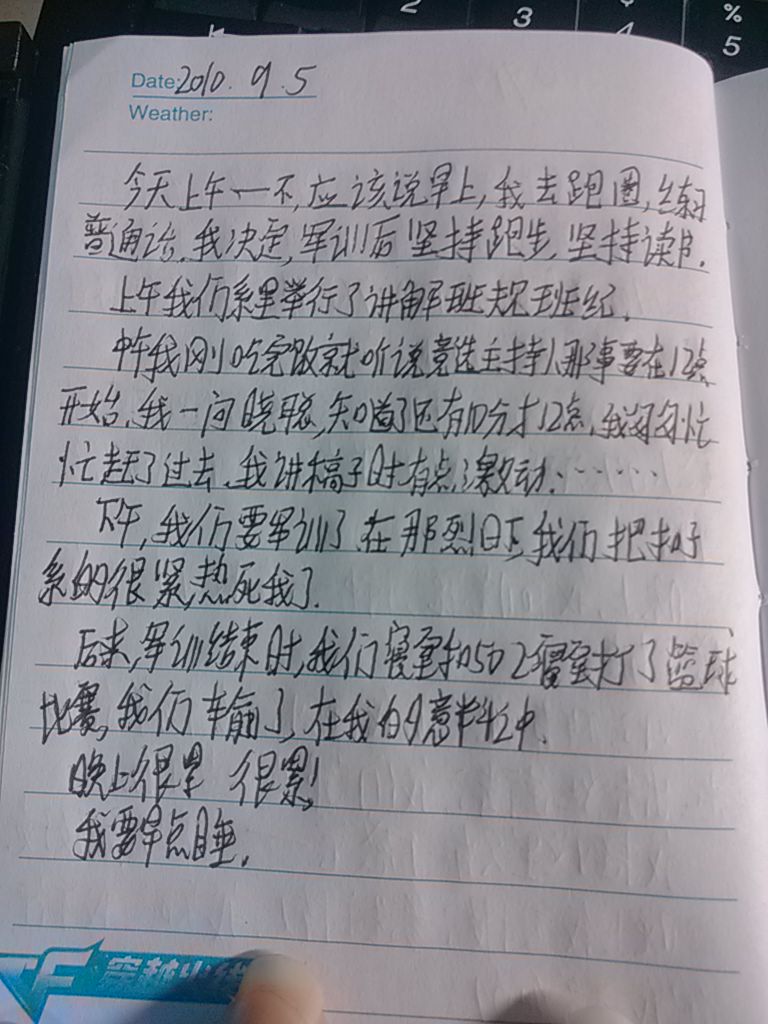 2
3
4
%
5
Date: 2010. 9. 5
Weather:
今天上午一不,应该说早上,我去跑圈,练习
普通话.我决定,军训后坚持跑步,坚持读书.
上午我们系里举行了讲解班规班纪.
中午我刚吃完饭就听说竞选主持人那事要在12点
开始.我一问晓聪,知道了还有10分才12点.我匆匆忙
忙赶了过去.我讲稿子时有点激动.……
下午,我们要军训了.在那烈日下,我们把扣子
系的很紧,热死我了.
后来,军训结束时,我们寝室和502寝室打了篮球
比赛,我们输了,在我的意料之中.
晚上很累 很累!
我要早点睡.
CF 穿越火线